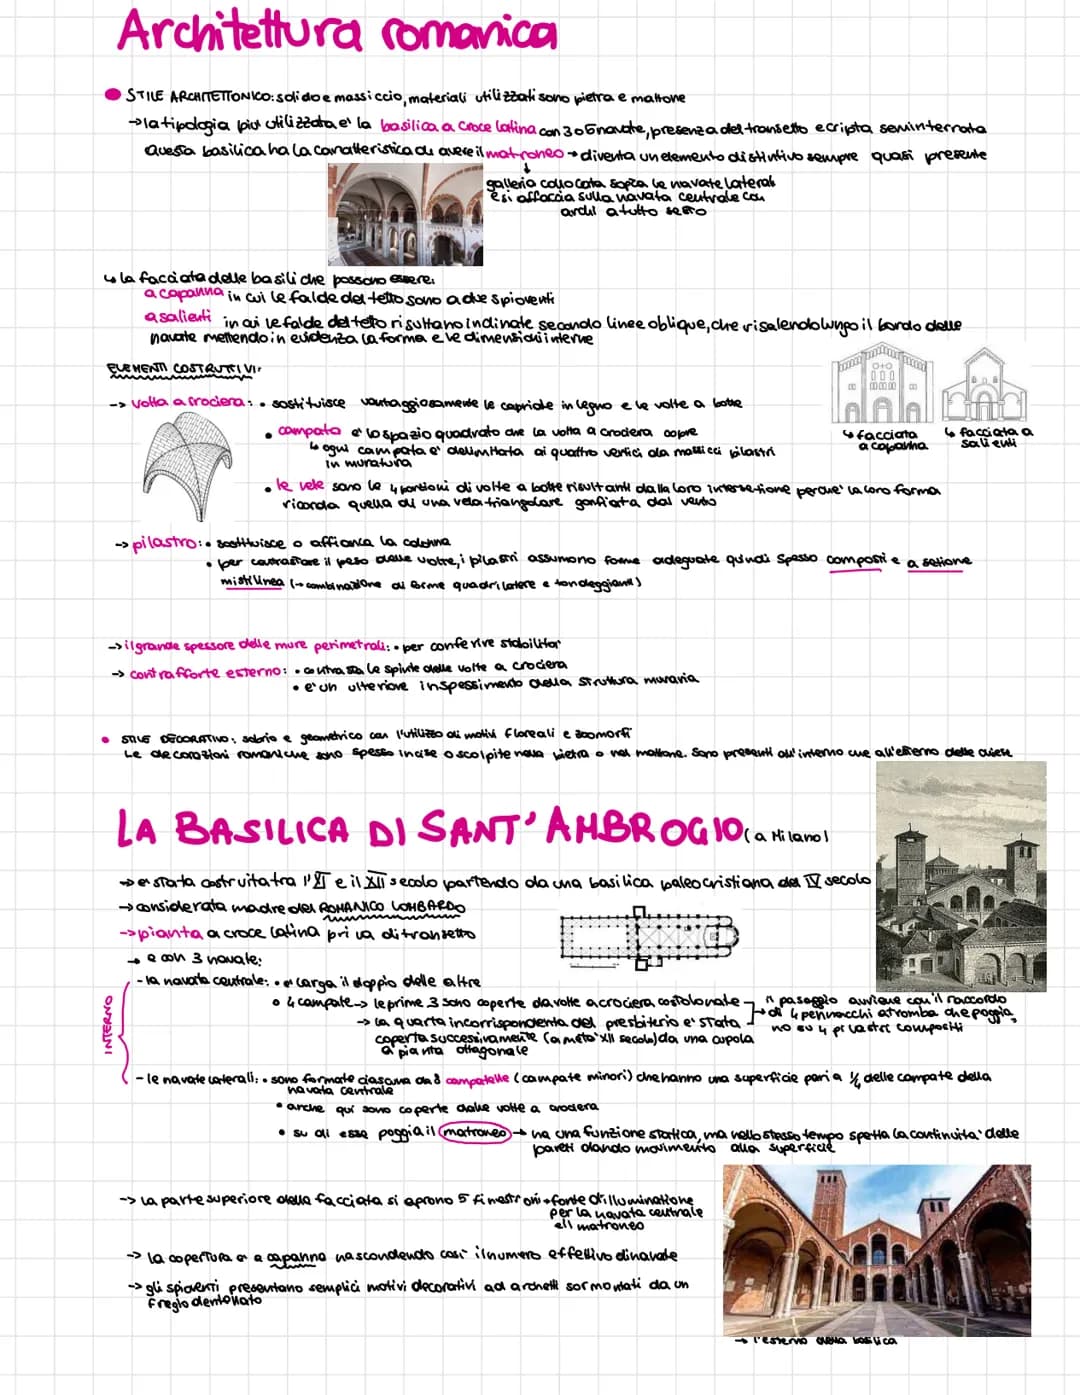 Architettura romanica
STILE ARCHITETTONICO: solido e massiccio, materiali utilizzati sono pietra e mattone
→ la tipologia più utilizzata e' la basilica a croce latina con 3 o 5 navate, presenza del transetto e cripta seminterrata
Questa basilica ha la caratteristica di avere il matroneo → diventa un elemento distintivo sempre quasi presente
galleria collocata sopra le navate laterali
e si affaccia sulla navata centrale con
archi a tutto sesto
↳ la facciata delle basiliche possono essere:
a capanna in cui le falde del tetto sono a due spioventi
a salienti in cui le falde del tetto risultano inclinate secondo linee oblique, che risalendo lungo il bordo delle
navate mettendo in evidenza la forma e le dimensioni interne
ELEMENTI COSTRUTTIVI:
→ volta a crociera: • sostituisce vantaggiosamente le capriate in legno e le volte a botte
• campata e' lo spazio quadrato che la volta a crociera copre
↳ ogni campata e' delimitata ai quattro vertici da massicci pilastri
in muratura
↳ facciata
a capanna
↳ facciata a
salienti
• le vele sono le 4 porzioni di volte a botte risultanti dalla loro intersezione perche' la loro forma
ricorda quella di una vela triangolare gonfiata dal vento
→ pilastro: • sostituisce o affianca la colonna
• per contrastare il peso delle volte, i pilastri assumono forme adeguate quindi spesso composti e a sezione
mistilinea (→ combinazione di forme quadrilatere e tondeggianti)
→ il grande spessore delle mura perimetrali: • per conferire stabilita'
→ contrafforte esterno: • contrasta le spinte delle volte a crociera
• e' un ulteriore inspessimento della struttura muraria
• STILE DECORATIVO: sobrio e geometrico con l'utilizzo di motivi floreali e zoomorfi
Le decorazioni romaniche sono spesso incise o scolpite nella pietra o nel mattone. Sono presenti all'interno che all'esterno delle chiese
LA BASILICA DI SANT' AMBROGIO (a Milano)
→ e' stata costruita tra l'XI e il XII secolo partendo da una basilica paleocristiana del IV secolo
→ considerata madre del ROMANICO LOMBARDO
→ pianta a croce latina priva di transetto
→ e con 3 navate:
INTERNO
- la navata centrale: • e' larga il doppio delle altre
• 4 campate → le prime 3 sono coperte da volte a crociera costolonate
→ la quarta in corrispondenza del presbiterio e' stata
coperta successivamente (a meta' XII secolo) da una cupola
a pianta ottagonale
→ il passaggio avviene con il raccordo
di 4 pennacchi a tromba che poggia
no su 4 pilastri compositi
- le navate laterali: • sono formate ciascuna da 8 campatelle (campate minori) che hanno una superficie pari a ¼ delle campate della
navata centrale
• anche qui sono coperte dalle volte a crociera
• su di esse poggia il matroneo → ha una funzione statica, ma nello stesso tempo spetta la continuita' delle
pareti dando movimento alla superficie
→ la parte superiore della facciata si aprono 5 finestroni → fonte di illuminazione
per la navata centrale
e il matroneo
→ la copertura e' a capanna nascondendo cosi' il numero effettivo di navate
→ gli spioventi presentano semplici motivi decorativi ad archetti sormontati da un
fregio dentellato
→ l'esterno della basilica